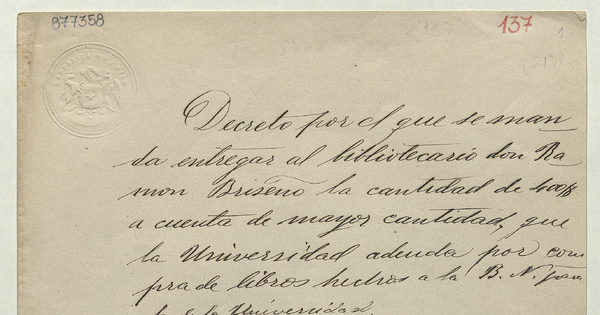 877358
137
1
Decreto por el que se man
da entregar al bibliotecario don Ra
mon Briseño la cantidad de 400$
a cuenta de mayor cantidad, que
la Universidad adeuda por com
pra de libros hechos a la B. N.
de la Universidad.